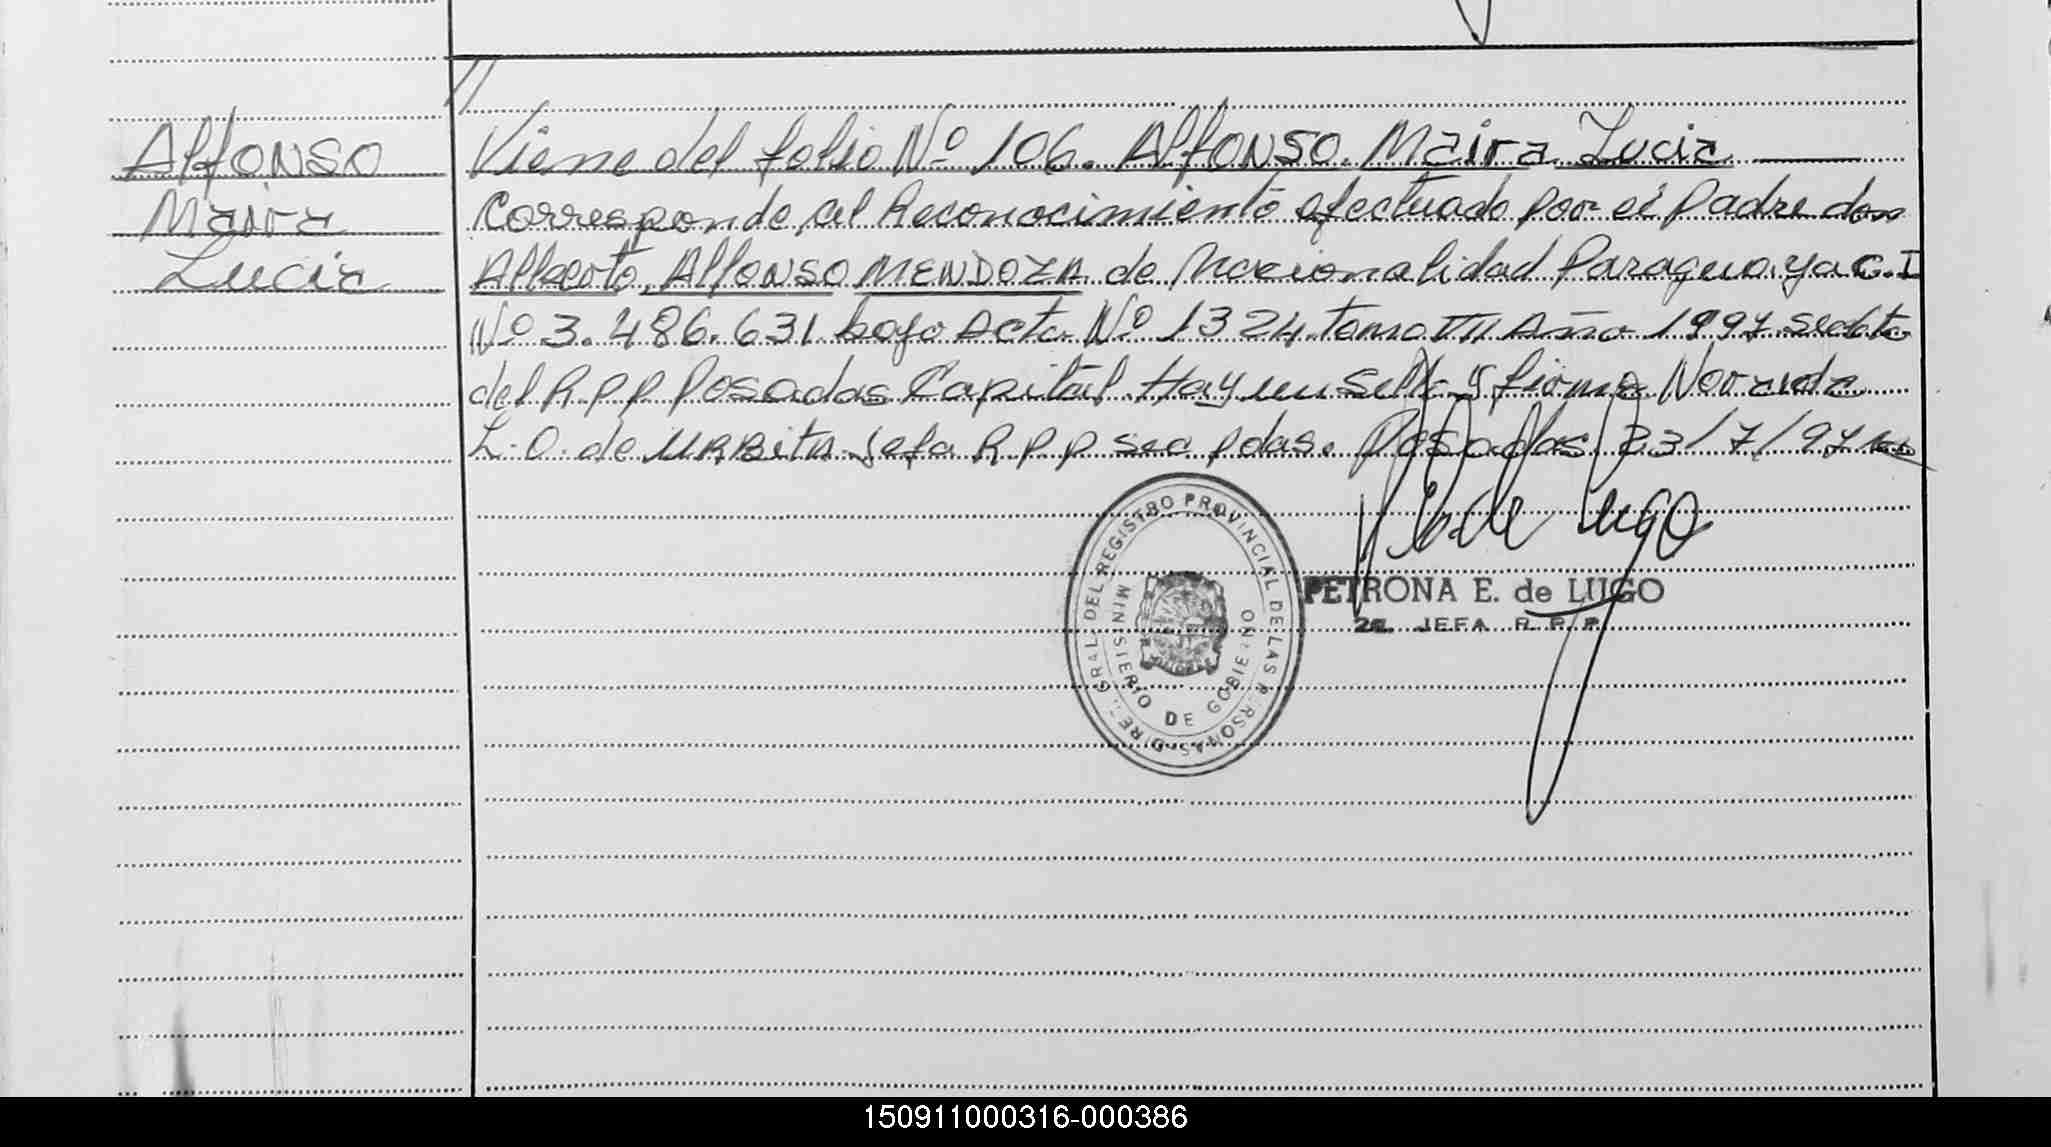 Alfonso
Maira
Lucia
//
Viene del folio Nº 106. Alfonso Maira Lucia
Corresponde al Reconocimiento efectuado por el Padre don
Alberto Alfonso MENDOZA de Nacionalidad Paraguaya C.I
Nº 3.486.631 bajo Acta Nº 1324 tomo VII Año 1997
del R.P.P Posadas Capital. Hay un sello y firma
L. O. de URBITA Jefa R.P.P sec pdas. Posadas 23/7/97
de Lugo
DIREC. GRAL. DEL REGISTRO PROVINCIAL DE LAS PERSONAS
MINISTERIO DE GOBIERNO
PETRONA E. de LUGO
2a. JEFA R. P. P.
150911000316-000386